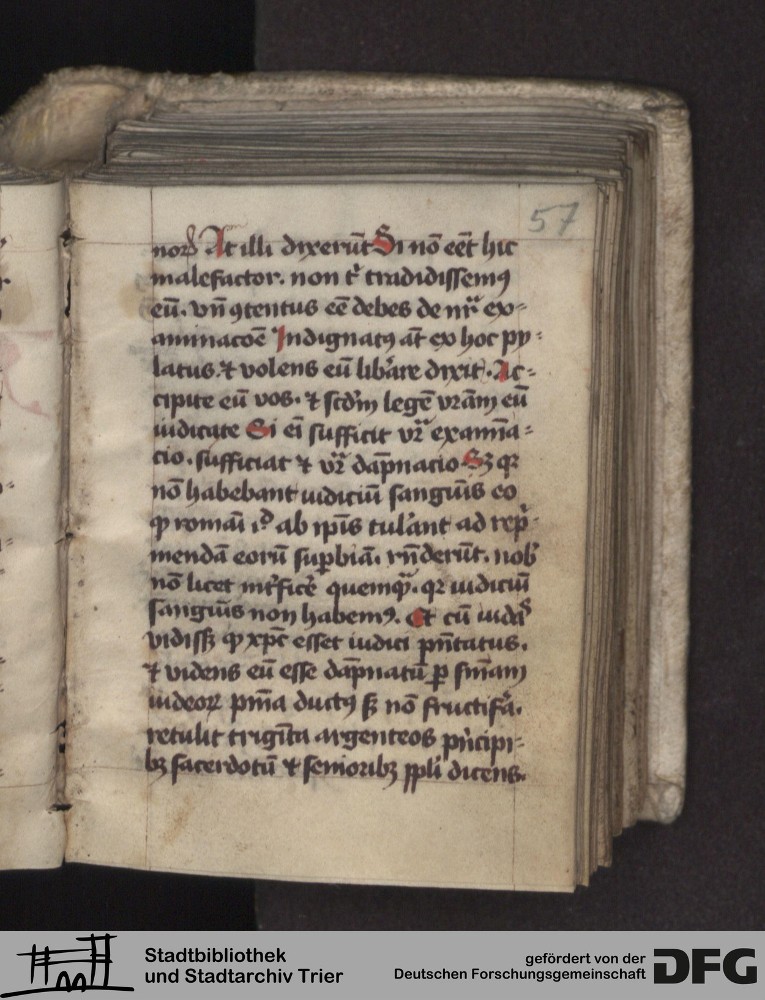 57
norꝰ At illi dixerūt Si nō eēt hic
malefactor. non tͥ tradidissemꝰ
eū. vn̄ ꝯtentus eē debes de nrͣ ex-
aminacōe Indignatꝰ at̄ ex hoc py-
latus. ⁊ volens eū libāre dixit. Ac-
cipite eū vos. ⁊ scd̄m legē vrām eū
iudicate Si ei sufficit vrͣ examīa-
cio. sufficiat ⁊ vrͣ dāpnacio Sꝫ qꝛ
nō habebant iudiciū sanguīs eo
ꝙ romāi ab ip̄is tulānt ad rep̄-
mendā eorū suꝑbiā. rn̄derūt. nobꝭ
nō licet int̄ficē quemꝙ̄. qꝛ iudiciū
sanguīs non habemꝰ. Et cū iudas
vidissꝫ ꝙ xp̄c esset iudici pn̄tatus.
⁊ videns eū esse dāpnatū ꝑ sn̄iam
iudeoꝝ pn̄ia ductꝰ sꝫ nō fructifā.
retulit trigīta argenteos pͥncipi-
bꝫ sacerdotū ⁊ senioribꝫ pp̄li dicens.
Stadtbibliothek
und Stadtarchiv Trier
gefördert von der
Deutschen Forschungsgemeinschaft
DFG